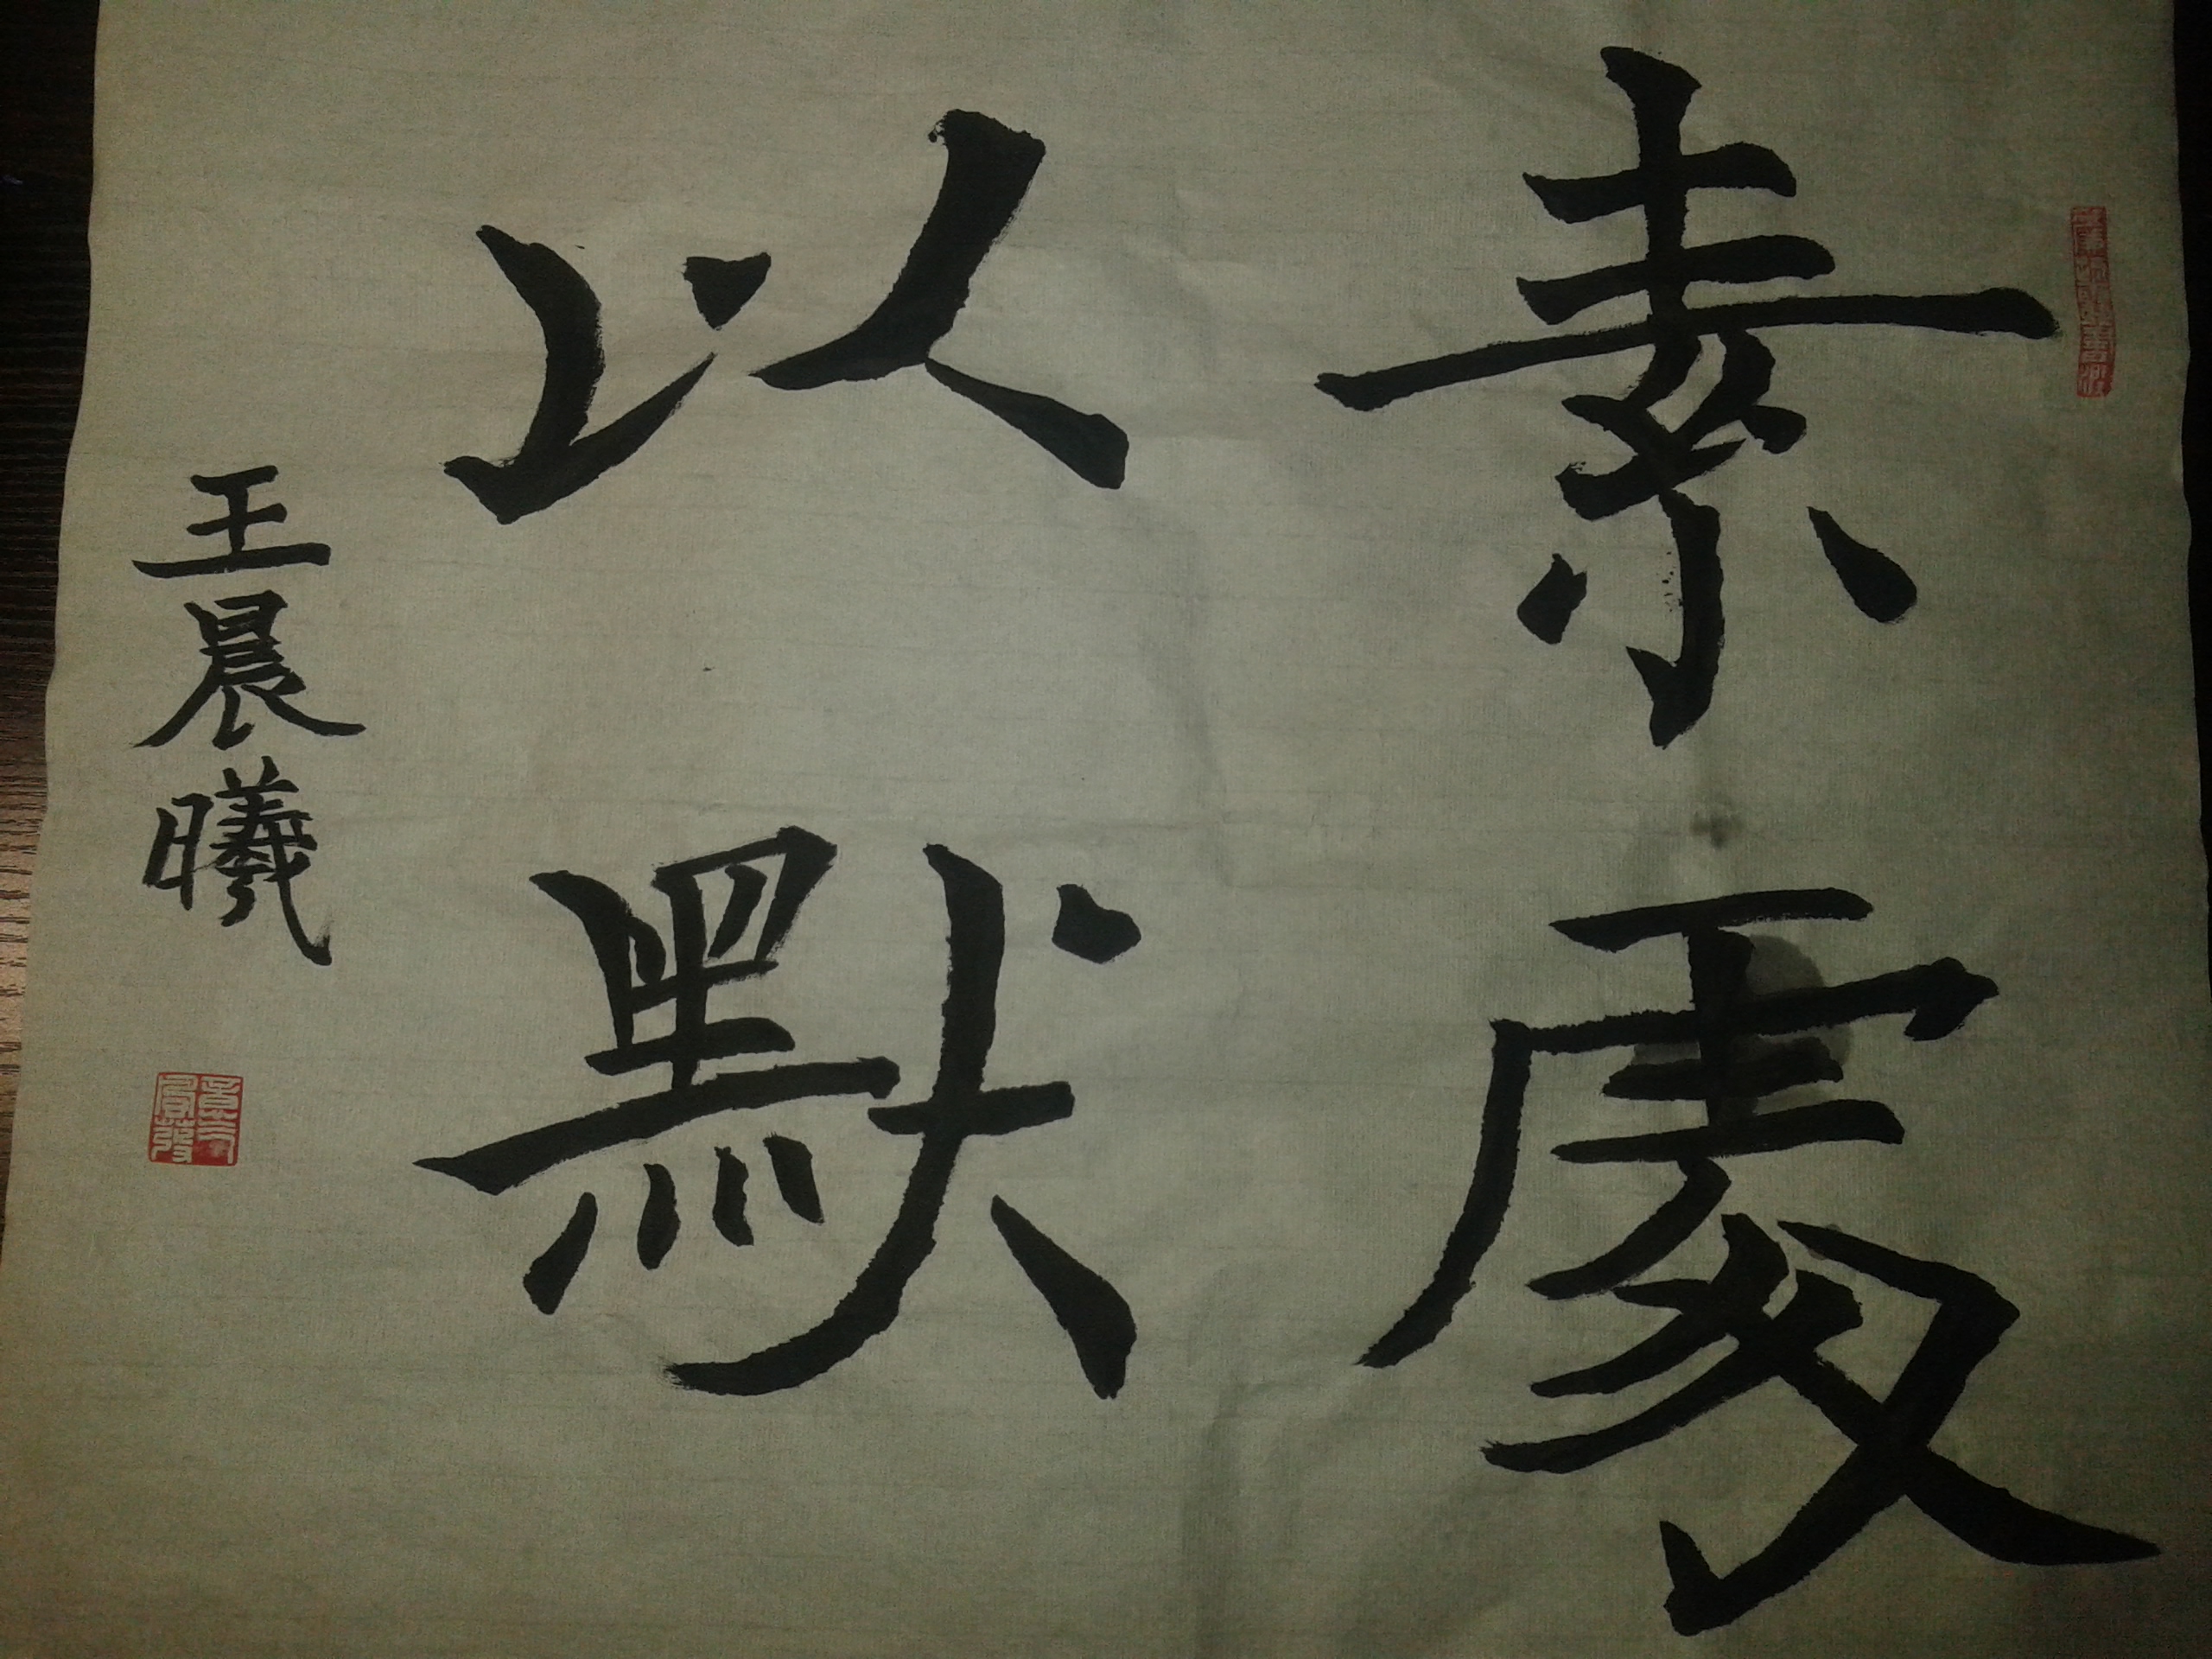 素處
以默
王晨曦